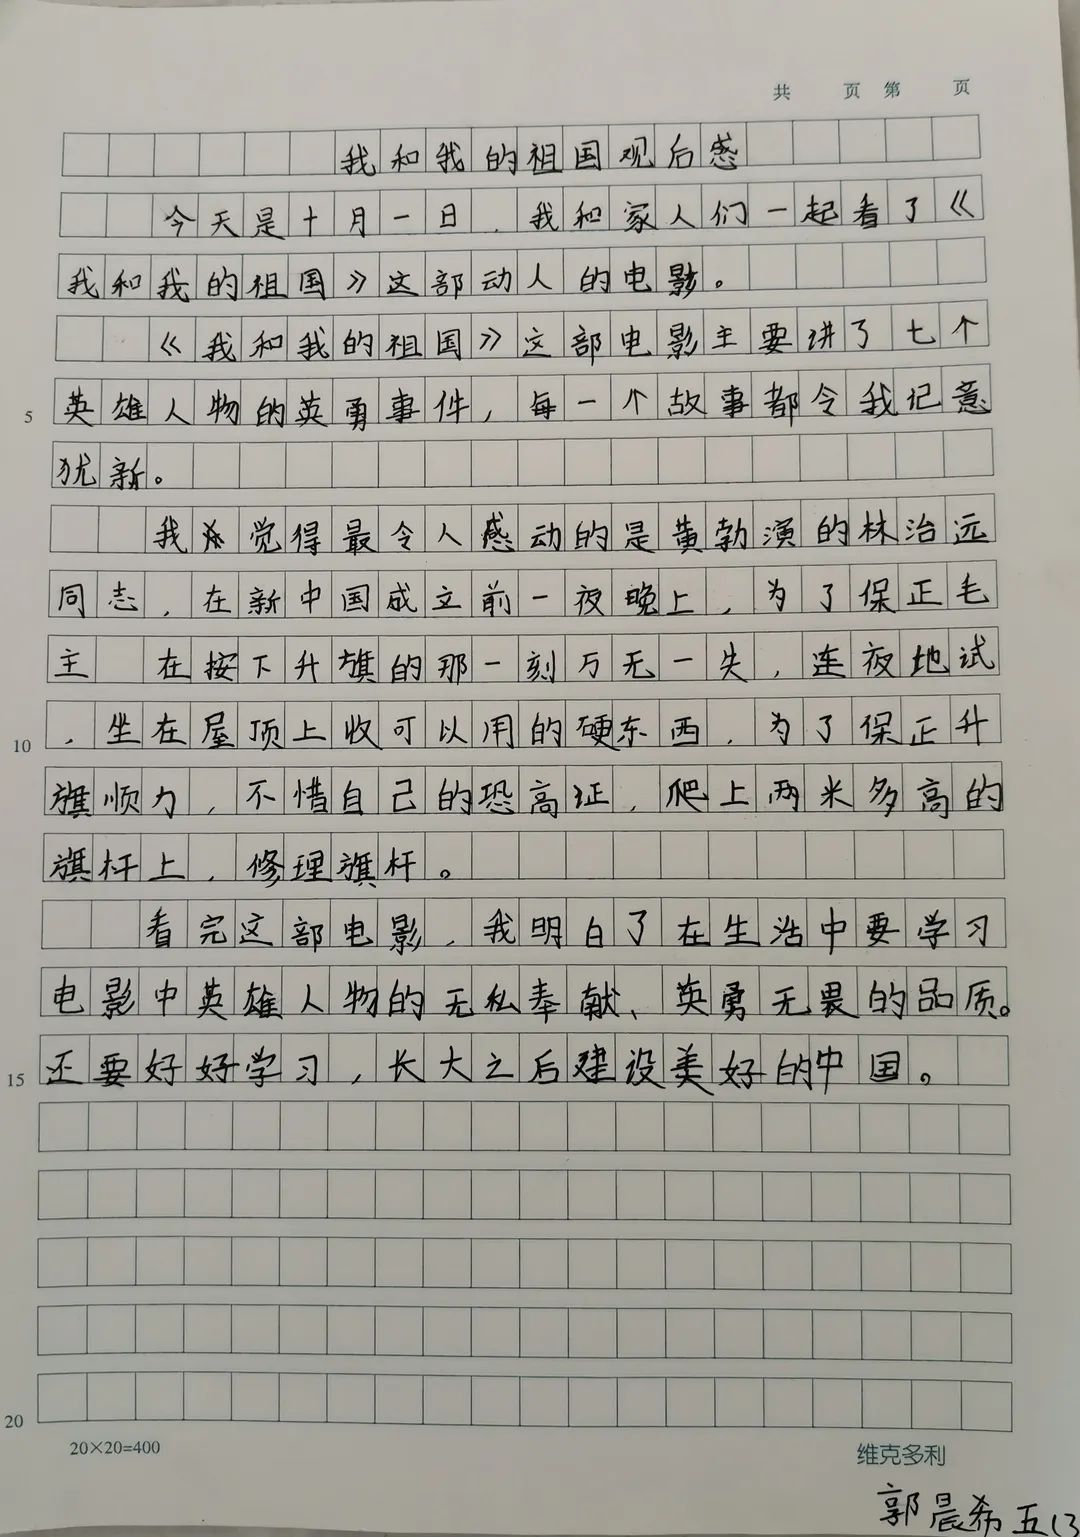 共 页 第 页
我和我的祖国观后感
今天是十月一日，我和家人们一起看了《
我和我的祖国》这部动人的电影。
《我和我的祖国》这部电影主要讲了七个
5 英雄人物的英勇事件，每一个故事都令我记意
犹新。
我觉得最令人感动的是黄勃演的林治远
同志，在新中国成立前一夜晚上，为了保正毛
主 在按下升旗的那一刻万无一失，连夜地试
10 ，坐在屋顶上收可以用的硬东西，为了保正升
旗顺力，不惜自己的恐高证，爬上两米多高的
旗杆上，修理旗杆。
看完这部电影，我明白了在生活中要学习
电影中英雄人物的无私奉献、英勇无畏的品质。
15 还要好好学习，长大之后建设美好的中国。
20
20×20=400 维克多利
郭晨希 五(